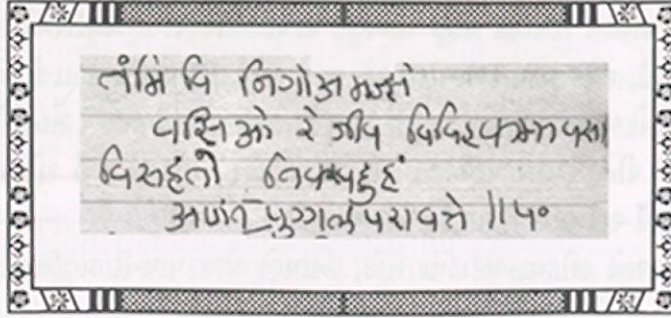 तंमि वि निगोअमज्झे
वसिओ रे जीव विविहकम्मवसा
विसहंतो तिक्खदुहं
अणंतपुग्गलपरावत्ते ॥५०